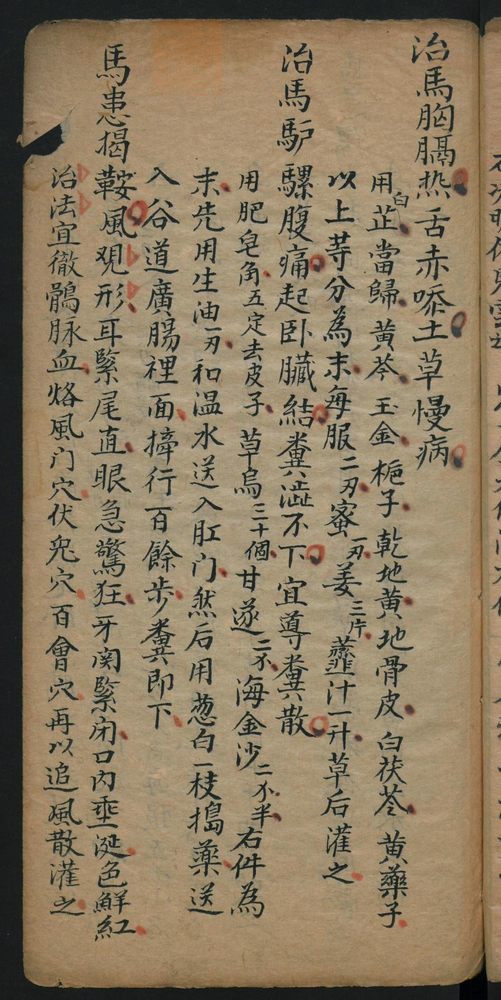 治馬胸膈热舌赤喺土草慢病
用白芷當歸黄芩玉金栀子乾地黄地骨皮白茯苓黄藥子
以上等分為末每服二刃蜜一刃姜三片虀汁一升草后灌之
治馬馿騾腹痛起卧臓結糞澁不下宜導糞散
用肥皂角五定去皮子草烏三十個甘遂二分海金沙二分半右件為
末先用生油一刃和温水送入肛门然后用葱白一枝搗藥送
入谷道廣腸裡面撁行百餘步糞即下
馬患揭鞍風覌形耳緊尾直眼急驚狂牙関緊闭口内垂涎色鮮紅
治法宜徹鶻脉血烙風门穴伏兔穴百會穴再以追風散灌之